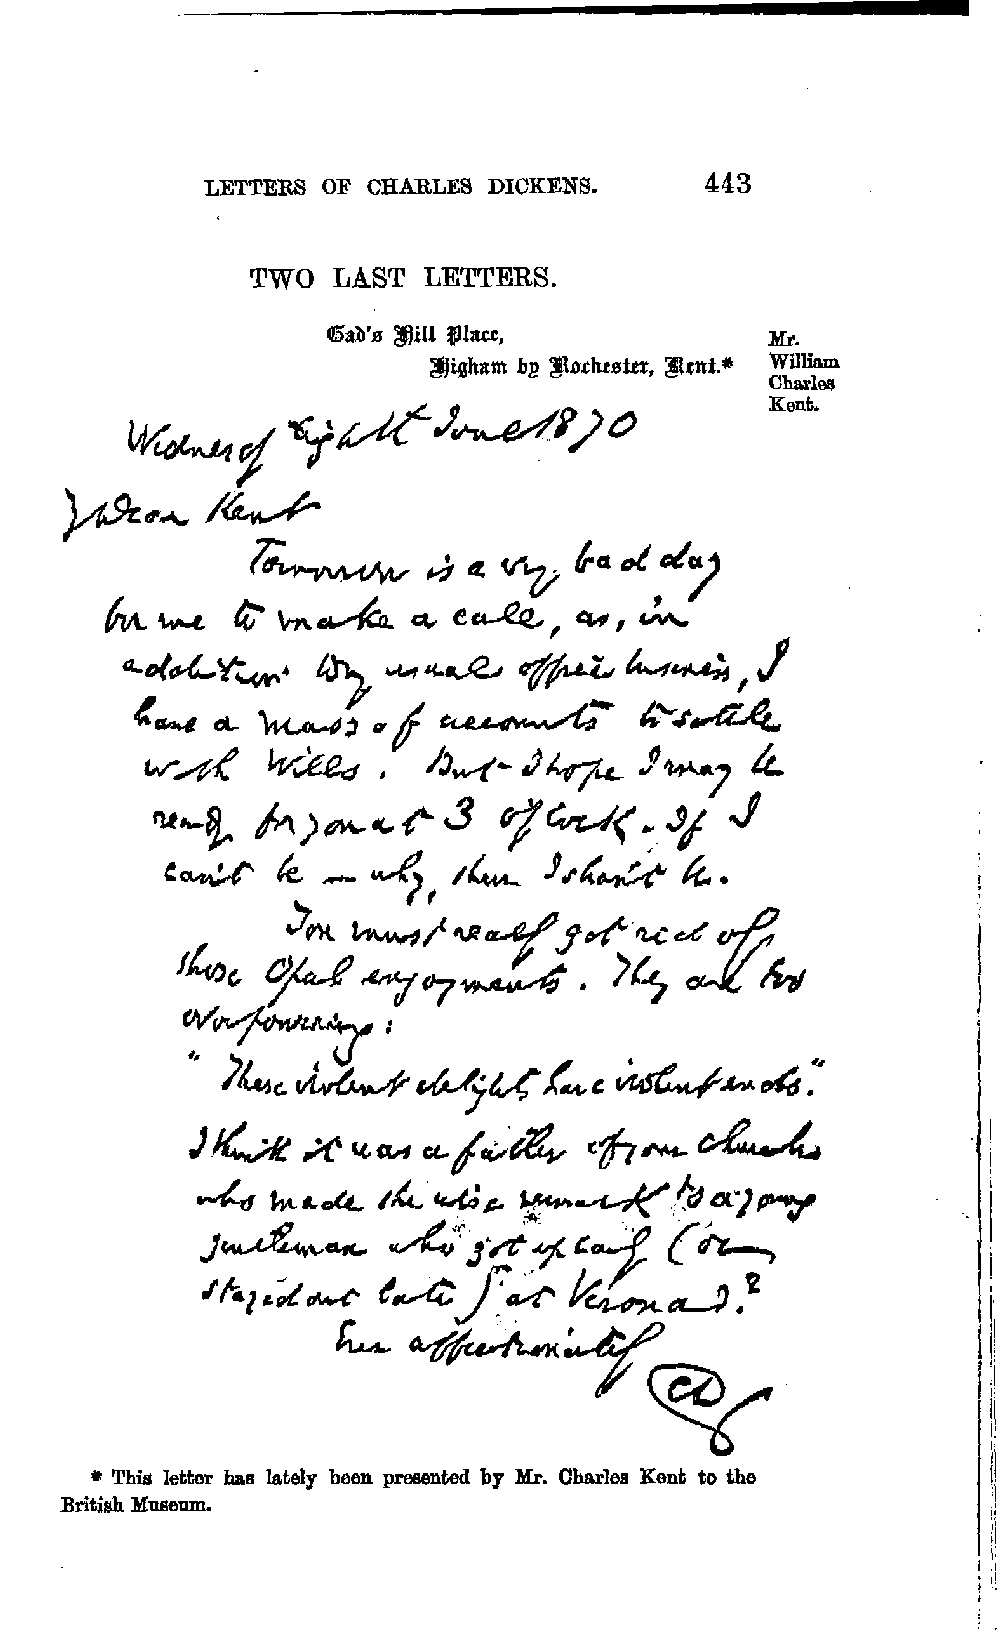 LETTERS OF CHARLES DICKENS. 443
TWO LAST LETTERS.
Gad's Hill Place,
Higham by Rochester, Kent.*
Mr.
William
Charles
Kent.
Wednesdy Eighth June 1870
My Dear Kent
Tomorrow is a very bad day
for me to make a call, as, in
addition to my usual office business, I
have a mass of accounts to settle
with Wills. But I hope I may be
ready for you at 3 o'Clock. If I
can't be — why, then I shan't be.
You must really get rid of
those Opal enjoyments. They are too
overpowering:
"These violent delights have violent ends."
I think it was a father of your church
who made the wise remark to a young
gentleman who got up early (or
stayed out late) at Verona?
Ever affectionately
CD
* This letter has lately been presented by Mr. Charles Kent to the
British Museum.